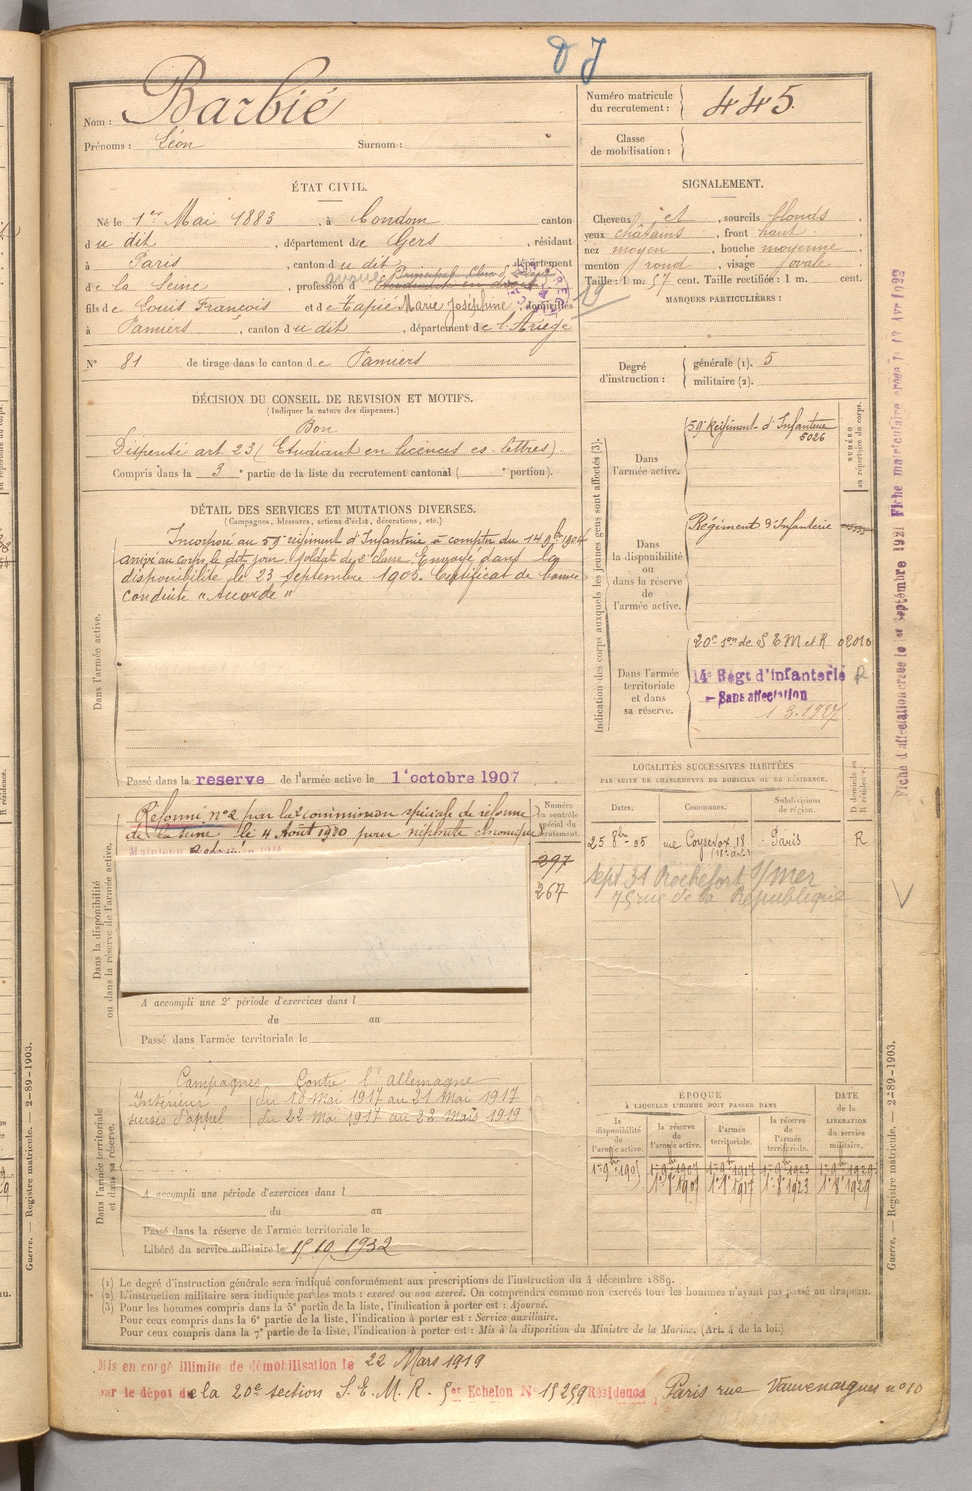 D J
Nom : Barbié
Prénoms : Léon Surnom :
Numéro matricule
du recrutement : 445.
Classe
de mobilisation :
ÉTAT CIVIL.
Né le 1er Mai 1883, à Condom canton
du dit, département de Gers, résidant
à Paris, canton du dit, département
de la Seine, profession d
fils de Louis François et de Tapié Marie Joséphine, domiciliés
à Pamiers, canton du dit, département de l'Ariège
N° 81 de tirage dans le canton de Pamiers
SIGNALEMENT.
Cheveux et, sourcils blonds,
yeux châtains, front haut,
nez moyen, bouche moyenne,
menton rond, visage ovale.
Taille : 1 m. 57 cent. Taille rectifiée : 1 m. cent.
MARQUES PARTICULIÈRES :
19
Degré
d'instruction :
générale (1). 5
militaire (2).
DÉCISION DU CONSEIL DE REVISION ET MOTIFS.
(Indiquer la nature des dispenses.)
Bon
Dispensé art. 23 (Etudiant en licences ès-lettres).
Compris dans la 3e partie de la liste du recrutement cantonal ( portion).
DÉTAIL DES SERVICES ET MUTATIONS DIVERSES.
(Campagnes, blessures, actions d'éclat, décorations, etc.)
Dans l'armée active.
Incorporé au 59e régiment d'Infanterie à compter du 14 9bre 1904
arrivé au corps le dit jour soldat de 2e classe. Envoyé dans la
disponibilité le 23 septembre 1905. Certificat de bonne
conduite "Accordé"
Passé dans la reserve de l'armée active le 1er octobre 1907
Indication des corps auxquels les jeunes gens sont affectés (3).
NUMÉRO
au répertoire du corps.
Dans
l'armée active.
59e Régiment d'Infanterie
5026
Dans
la disponibilité
ou
dans la réserve
de
l'armée active.
Régiment d'Infanterie
Dans l'armée
territoriale
et dans
sa réserve.
20e son de S E M et R 02010
14e Régt d'Infanterie R
Sans affectation
1.3.1927
Fiche d'affectation créée le 1er Septembre 1921 Fiche matriculaire créée le 18 Avr 1922
Dans la disponibilité
ou dans la réserve de l'armée active.
Réformé n°2 par la 2e commission spéciale de réforme
de la Seine le 4 Août 1910 pour néphrite chronique
Numéro
du contrôle
spécial du
recrutement.
297
267
A accompli une 2e période d'exercices dans l
du au
Passé dans l'armée territoriale le
LOCALITÉS SUCCESSIVES HABITÉES
PAR SUITE DE CHANGEMENTS DE DOMICILE OU DE RÉSIDENCE.
Dates. Communes. Subdivisions
de région.
D domicile ou
R résidence.
25 8bre 05 rue Coysevox 18 Paris R
(18e arrt)
Sept 31 Rochefort s/mer
75 rue de la République
Dans l'armée territoriale
et dans sa réserve.
Campagnes Contre l'Allemagne
Intérieur du 10 Mai 1917 au 21 Mai 1917
sursis d'appel du 22 Mai 1917 au 22 Mars 1919
A accompli une période d'exercices dans l
du an
Passé dans la réserve de l'armée territoriale le
Libéré du service militaire le 15 10 1932
ÉPOQUE
À LAQUELLE L'HOMME DOIT PASSER DANS
la
disponibilité
de
l'armée active.
la réserve
de
l'armée active.
l'armée
territoriale.
la réserve
de
l'armée
territoriale.
DATE
de la
LIBÉRATION
du service
militaire.
1er 9bre 1905 1er 9bre 1907 1er 9bre 1917 1er 9bre 1923 1er 9bre 1929
1er 8 1907 1er 1 1917 1er 8 1923 1er 8 1929
(1) Le degré d'instruction générale sera indiqué conformément aux prescriptions de l'instruction du 4 décembre 1889.
(2) L'instruction militaire sera indiquée par les mots : exercé ou non exercé. On comprendra comme non exercés tous les hommes n'ayant pas passé au drapeau.
(3) Pour les hommes compris dans la 5e partie de la liste, l'indication à porter est : Ajourné.
Pour ceux compris dans la 6e partie de la liste, l'indication à porter est : Service auxiliaire.
Pour ceux compris dans la 7e partie de la liste, l'indication à porter est : Mis à la disposition du Ministre de la Marine. (Art. 4 de la loi.)
Mis en congé illimité de démobilisation le 22 Mars 1919
par le dépôt de la 20e section S. E. M. R. 5er Echelon N° 15259 Résidence Paris rue Vauvenargues n° 10
Guerre. — Registre matricule. — 2-89-1903.
Guerre. — Registre matricule. — 2-89-1903.